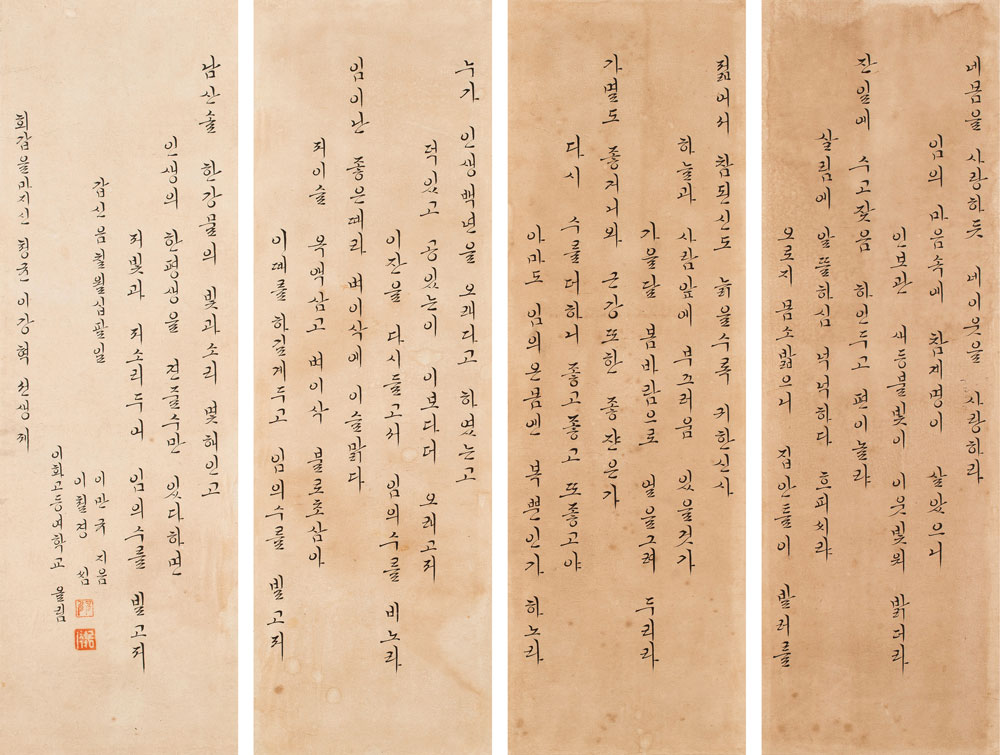 네몸을 사랑하듯 네이웃을 사랑하라
임의 마음속에 참계명이 살았으니
인보관 새등불빛이 이웃빛되 밝더라
잔일에 수고잦음 하인두고 편이놀랴
살림에 알뜰하심 부부하다
오로지 집안들이
젊어서 참된신도 늙을수록 귀한신사
하늘과 사람앞에 부끄러움 있을것가
가을달 봄바람으로 얼을그려 두리라
가멸도 좋거니와 근강또한 좋쟌은가
다시 수를더하니 좋고좋고 또좋고야
아마도 임의온몸엔 복뿐인가 하노라
누가 인생백년을 오래다고 하였는고
덕있고 공있는이 이보다더 오래고저
이잔을 다시들고서 임의수를 비노라
임이난 좋은때라 벼이삭에 이슬맑다
저이슬 옥맥삼고 벼이삭 불로초삼아
이때를 하길게두고 임의수를 빌고저
남산솔 한강물의 빛과소리 몇해인고
인생의 한평생을 견줄수만 있다하면
저빛과 저소리두어 임의수를 빌고저
갑신음칠월십팔일
이만규 지음
이철경 씀
이화고등여학교 올림
회갑을마지신 이강혁 선생께